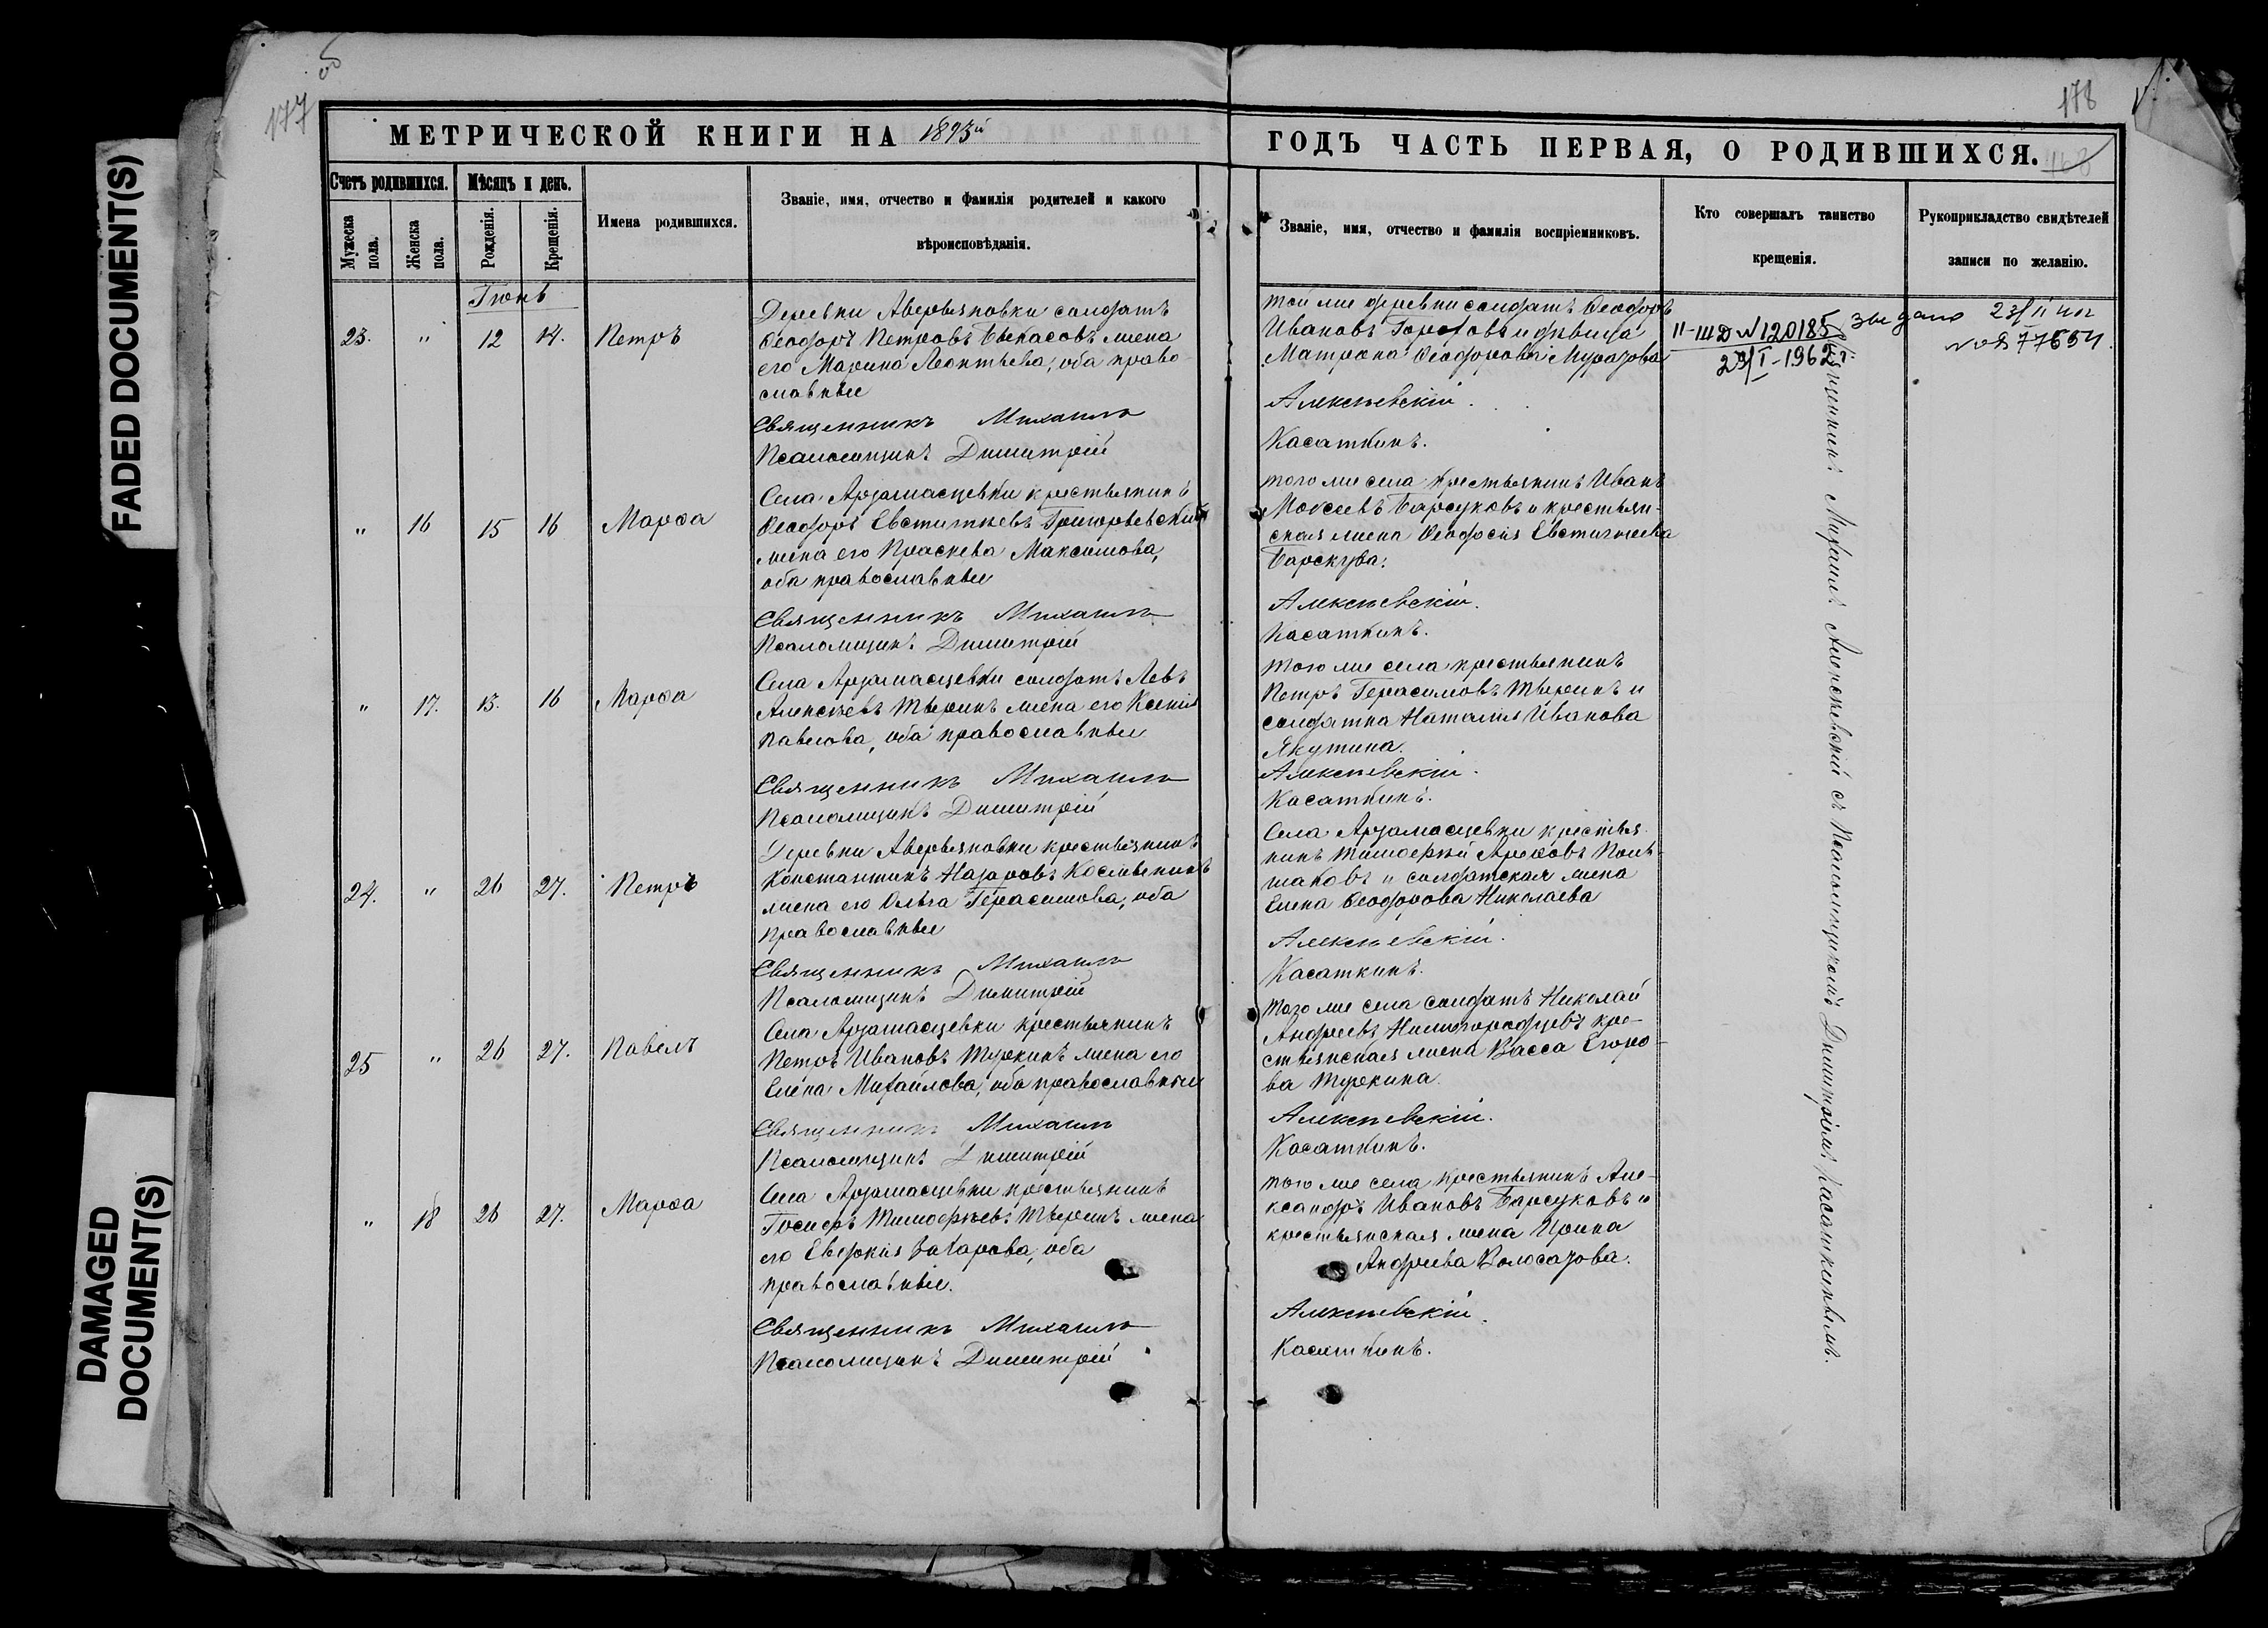 FADED DOCUMENT(S)
DAMAGED
DOCUMENT(S)
об
177
МЕТРИЧЕСКОЙ КНИГИ НА 1893й
Счетъ родившихся.
Мѣсяцъ и день.
Мужеска пола.
Женска пола.
Рожденія.
Крещенія.
Имена родившихся.
Званіе, имя, отчество и фамилія родителей и какого
вѣроисповѣданія.
Іюнь
23. " 12 14. Петръ
Деревни Аверьяновки солдатъ
Ѳеодоръ Петровъ жена
его Марина Леонтьева, оба право
славные
Священникъ Михаилъ
Псаломщикъ Димитрій
" 16 15 16 Марѳа
Села Арзамасцевки крестьянинъ
Ѳеодоръ Евстигнѣевъ Григорьевскій
жена его Праскева Максимова,
оба православные
Священникъ Михаилъ
Псаломщикъ Димитрій
" 17. 15. 16 Марѳа
Села Арзамасцевки солдатъ Левъ
Алексѣевъ Тверинъ жена его Ксенія
Павлова, оба православные
Священникъ Михаилъ
Псаломщикъ Димитрій
24. " 26 27. Петръ
Деревни Аверьяновки крестьянинъ
Константинъ Назаровъ
жена его Ольга Герасимова, оба
православные
Священникъ Михаилъ
Псаломщикъ Димитрій
25 " 26 27. Павелъ
Села Арзамасцевки крестьянинъ
Петръ Ивановъ Туркинъ жена его
Елена Михайлова, оба православные
Священникъ Михаилъ
Псаломщикъ Димитрій
" 18 26 27. Марѳа
Села Арзамасцевки крестьянинъ
Іосифъ Тимофѣевъ Тверинъ жена
его Евфимія Захарова, оба
православные.
Священникъ Михаилъ
Псаломщикъ Димитрій
178
168
ГОДЪ ЧАСТЬ ПЕРВАЯ, О РОДИВШИХСЯ.
Званіе, имя, отчество и фамилія воспріемниковъ.
Кто совершалъ таинство
крещенія.
Рукоприкладство свидѣтелей
записи по желанію.
той же деревни солдатъ Ѳеодоръ
Ивановъ Гороховъ и дѣвица
Матрона Ѳеодорова Мурзова
Алексѣевскій.
Касаткинъ.
того же села крестьянинъ Иванъ
Моисеевъ Барсуковъ и крестьян-
ская жена Ѳеодосія Евстигнеева
Алексѣевскій.
Касаткинъ.
того же села крестьянинъ
Петръ Герасимовъ Тверинъ и
солдатка Наталія Иванова
Якутина.
Алексѣевскій.
Касаткинъ.
Села Арзамасцевки крестья-
нинъ Тимофей Поль-
шаковъ и солдатская жена
Елена Ѳеодорова Николаева
Алексѣевскій.
Касаткинъ.
того же села солдатъ Николай
Андреевъ Нижегородцевъ кре-
стьянская жена Васса Егоро-
ва Туркина.
Алексѣевскій.
Касаткинъ.
того же села крестьянинъ Але-
ксандръ Ивановъ Барсуковъ и
крестьянская жена Ирина
Андреева Волосазова.
Алексѣевскій.
Касаткинъ.
II-ШД № 120185
23/I-1962 г.
Священникъ Михаилъ Алексѣевскій съ Псаломщикомъ Димитріемъ Касаткинымъ.